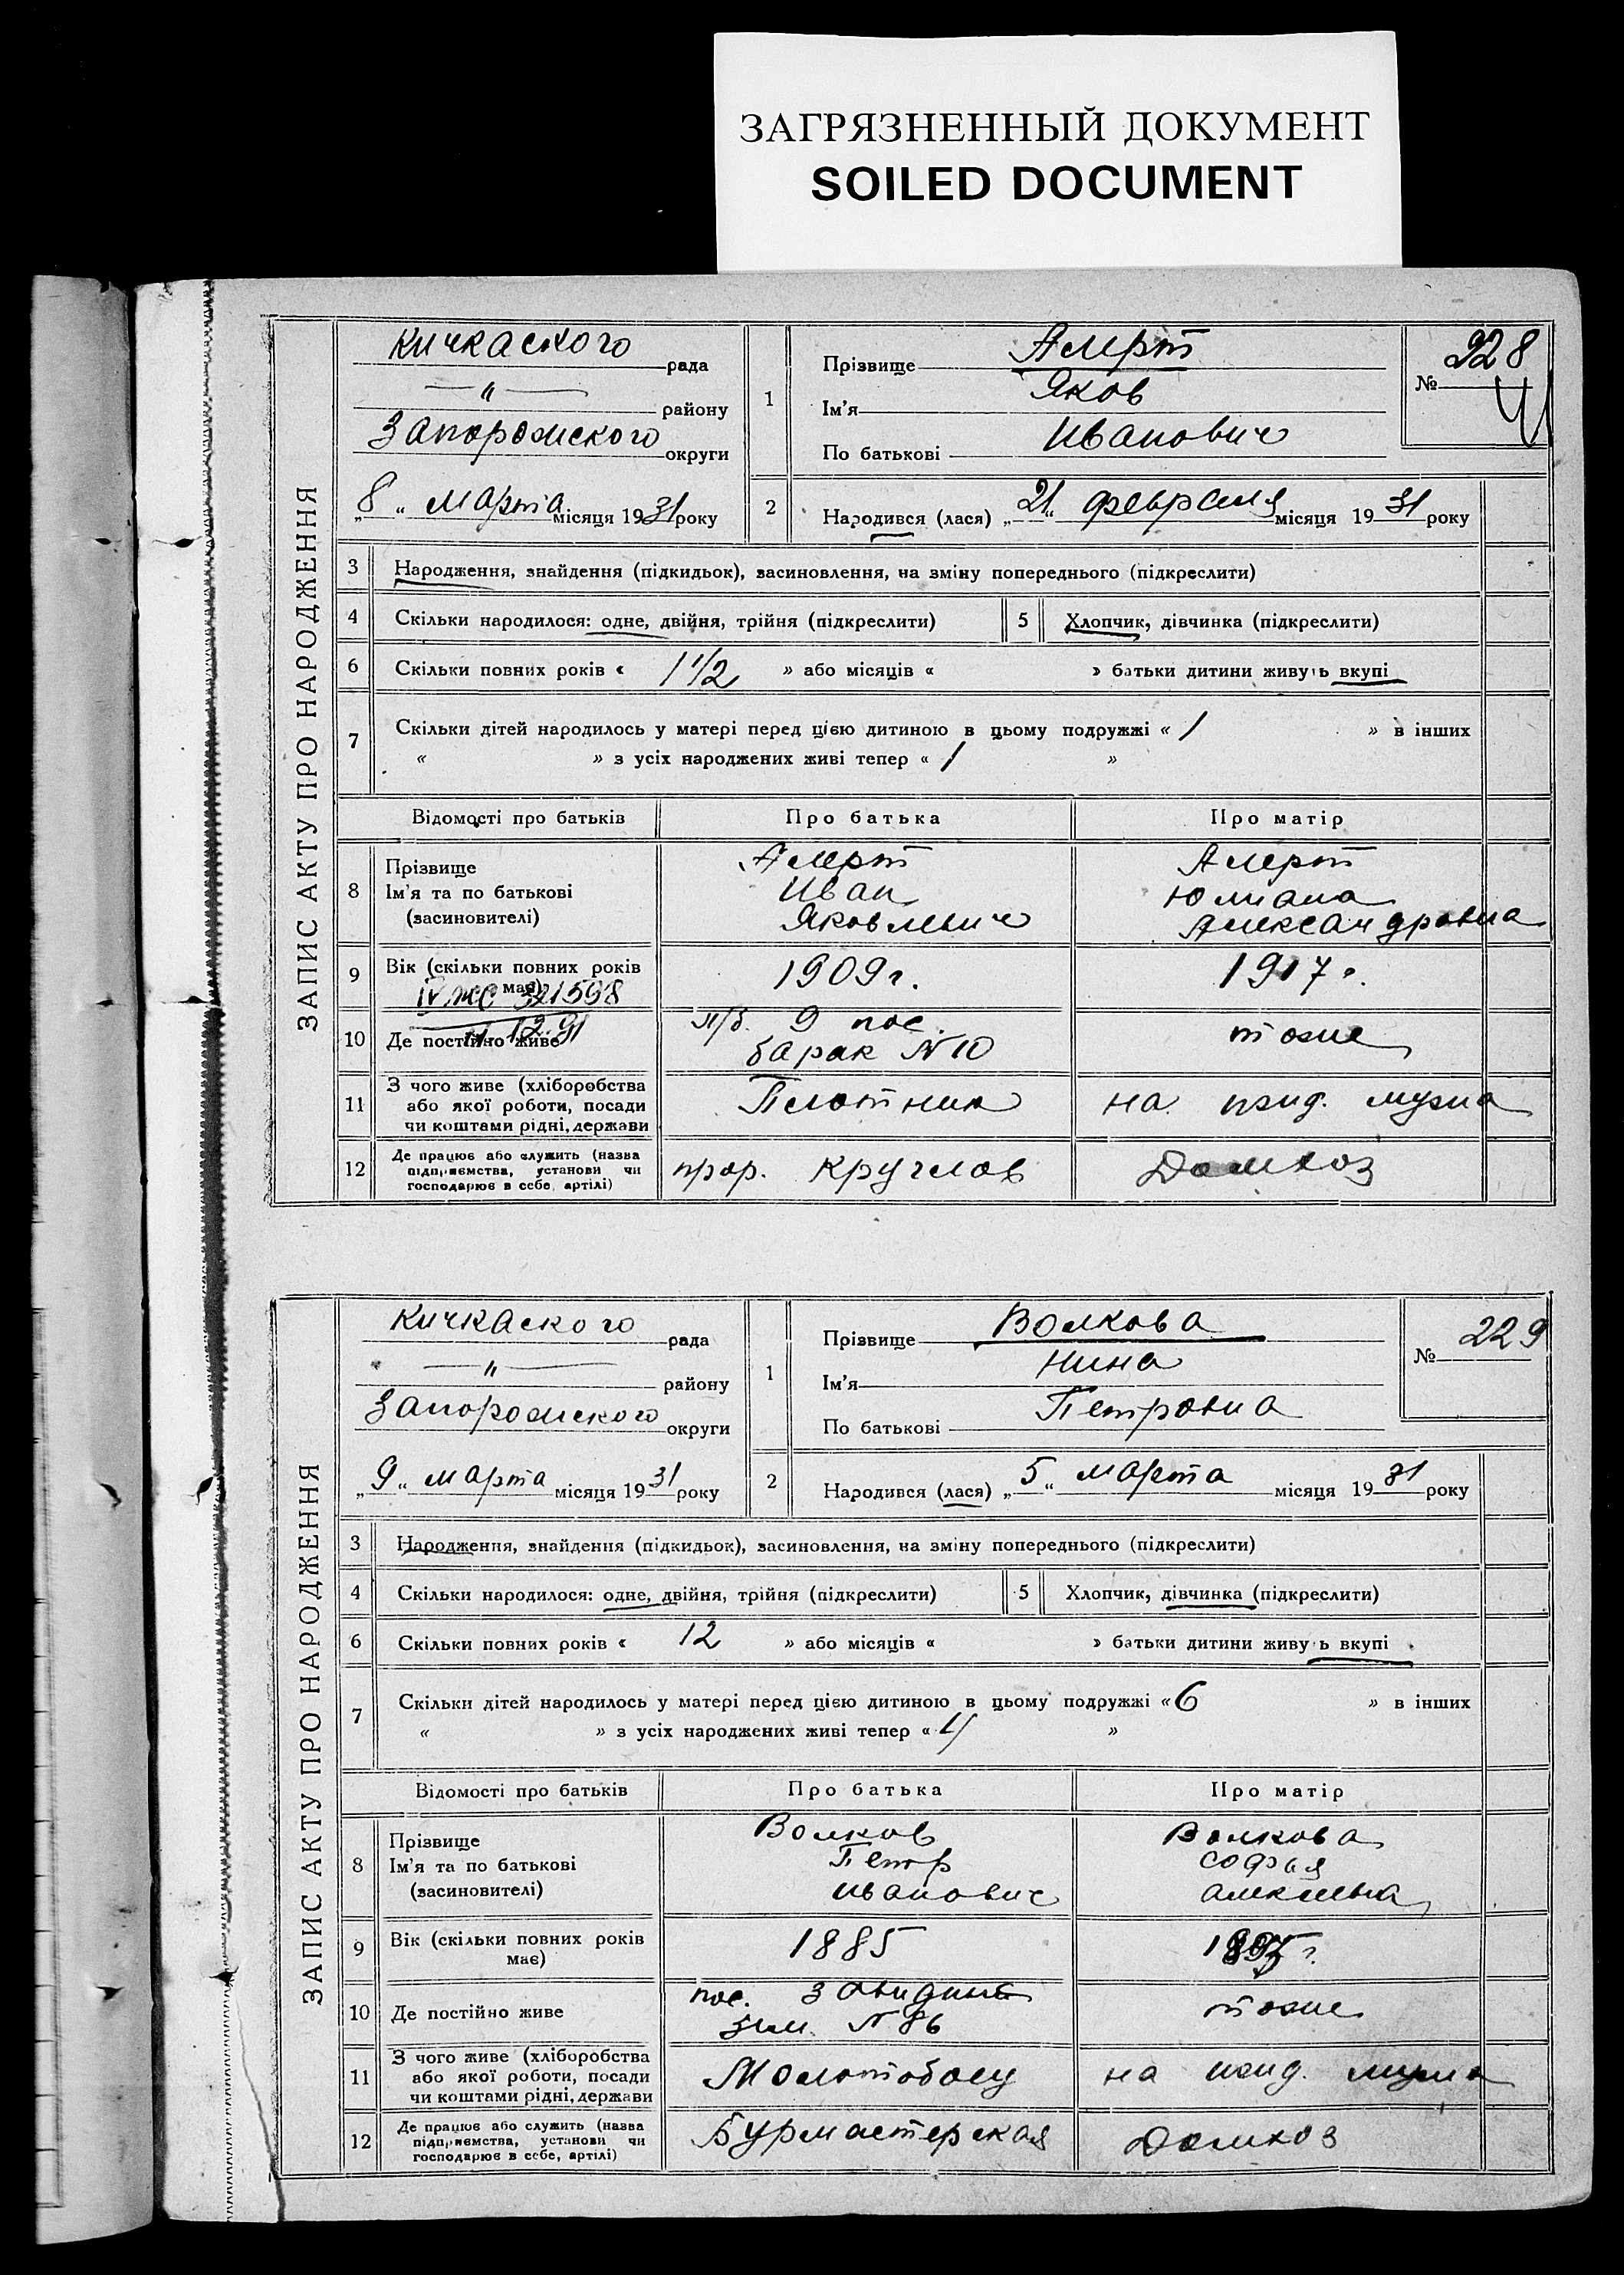 ЗАГРЯЗНЕННЫЙ ДОКУМЕНТ
SOILED DOCUMENT
ЗАПИС АКТУ ПРО НАРОДЖЕННЯ
Кичкаского рада
— " — району
Запорожского округи
„8" марта місяця 1931 року
1 Прізвище Алерт
Ім'я Яков
По батькові Иванович
№ 228
2 Народився (лася) „21" февраля місяця 1931 року
3 Народження, знайдення (підкидьок), засиновлення, на зміну попереднього (підкреслити)
4 Скільки народилося: одне, двійня, трійня (підкреслити) 5 Хлопчик, дівчинка (підкреслити)
6 Скільки повних років « 1 1/2 » або місяців « » батьки дитини живуть вкупі
7 Скільки дітей народилось у матері перед цією дитиною в цьому подружжі « 1 » в інших
« » з усіх народжених живі тепер « 1 »
Відомості про батьків Про батька Про матір
8 Прізвище Алерт Алерт
Ім'я та по батькові Иван Юлиана
(засновителі) Яковлевич Александровна
9 Вік (скільки повних років має) 1909 г. 1917 г.
IV ЖС 321598
12.91
10 Де постійно живе п/б. 9 пос. тоже
барак N 10
11 З чого живе (хліборобства Плотник на ижд. мужа
або якої роботи, посади
чи коштами рідні, держави
12 Де працює або служить (назва прор. Круглов Домхоз
підприємства, установи чи
господарює в себе, артілі)
ЗАПИС АКТУ ПРО НАРОДЖЕННЯ
Кичкаского рада
— " — району
Запорожского округи
„9" марта місяця 1931 року
1 Прізвище Волкова
Ім'я Нина
По батькові Петровна
№ 229
2 Народився (лася) „5" марта місяця 1931 року
3 Народження, знайдення (підкидьок), засиновлення, на зміну попереднього (підкреслити)
4 Скільки народилося: одне, двійня, трійня (підкреслити) 5 Хлопчик, дівчинка (підкреслити)
6 Скільки повних років « 12 » або місяців « » батьки дитини живуть вкупі
7 Скільки дітей народилось у матері перед цією дитиною в цьому подружжі « 6 » в інших
« » з усіх народжених живі тепер « 4 »
Відомості про батьків Про батька Про матір
8 Прізвище Волков Волкова
Ім'я та по батькові Петр Софья
(засиновителі) Иванович
9 Вік (скільки повних років має) 1885
10 Де постійно живе пос. тоже
зем. N 86
11 З чого живе (хліборобства Молотобоец на ижд. мужа
або якої роботи, посади
чи коштами рідні, держави
12 Де працює або служить (назва Бурмастерская Домхоз
підприємства, установи чи
господарює в себе, артілі)